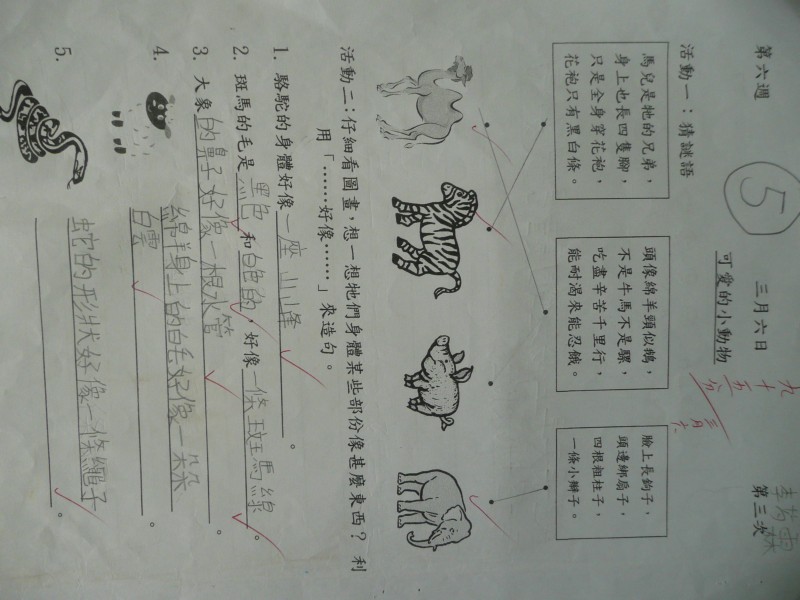 第六週
三月六日
第三次
5
可愛的小動物
九十五分
三月六
活動一：猜謎語
馬兒是牠的兄弟，
身上也長四隻腳，
只是全身穿花袍，
花袍只有黑白條。
頭像綿羊頸似鵝，
不是牛馬不是騾，
吃盡辛苦千里行，
能耐渴來能忍餓。
臉上長鉤子，
頭邊綁扇子，
四根粗柱子，
一條小辮子。
活動二：仔細看圖畫，想一想牠們身體某些部份像甚麼東西？利
用「……好像……」來造句。
1. 駱駝的身體好像一座山峰。
2. 斑馬的毛是黑色和白色的，好像一條斑馬線。
3. 大象的鼻子好像一根水管。
4. 綿羊身上的白毛好像一朵
白雲。
5. 蛇的形狀好像一條繩子
。